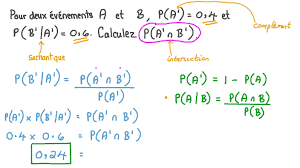 Pour deux événements A et B, P(A') = 0,4 et
P(B'|A') = 0,6. Calculez P(A' ∩ B')
complément
sachant que
intersection
P(B'|A') = P(A' ∩ B') / P(A')
P(A') × P(B'|A') = P(A' ∩ B')
0.4 × 0.6 = P(A' ∩ B')
0,24 =
P(A') = 1 - P(A)
• P(A|B) = P(A ∩ B) / P(B)